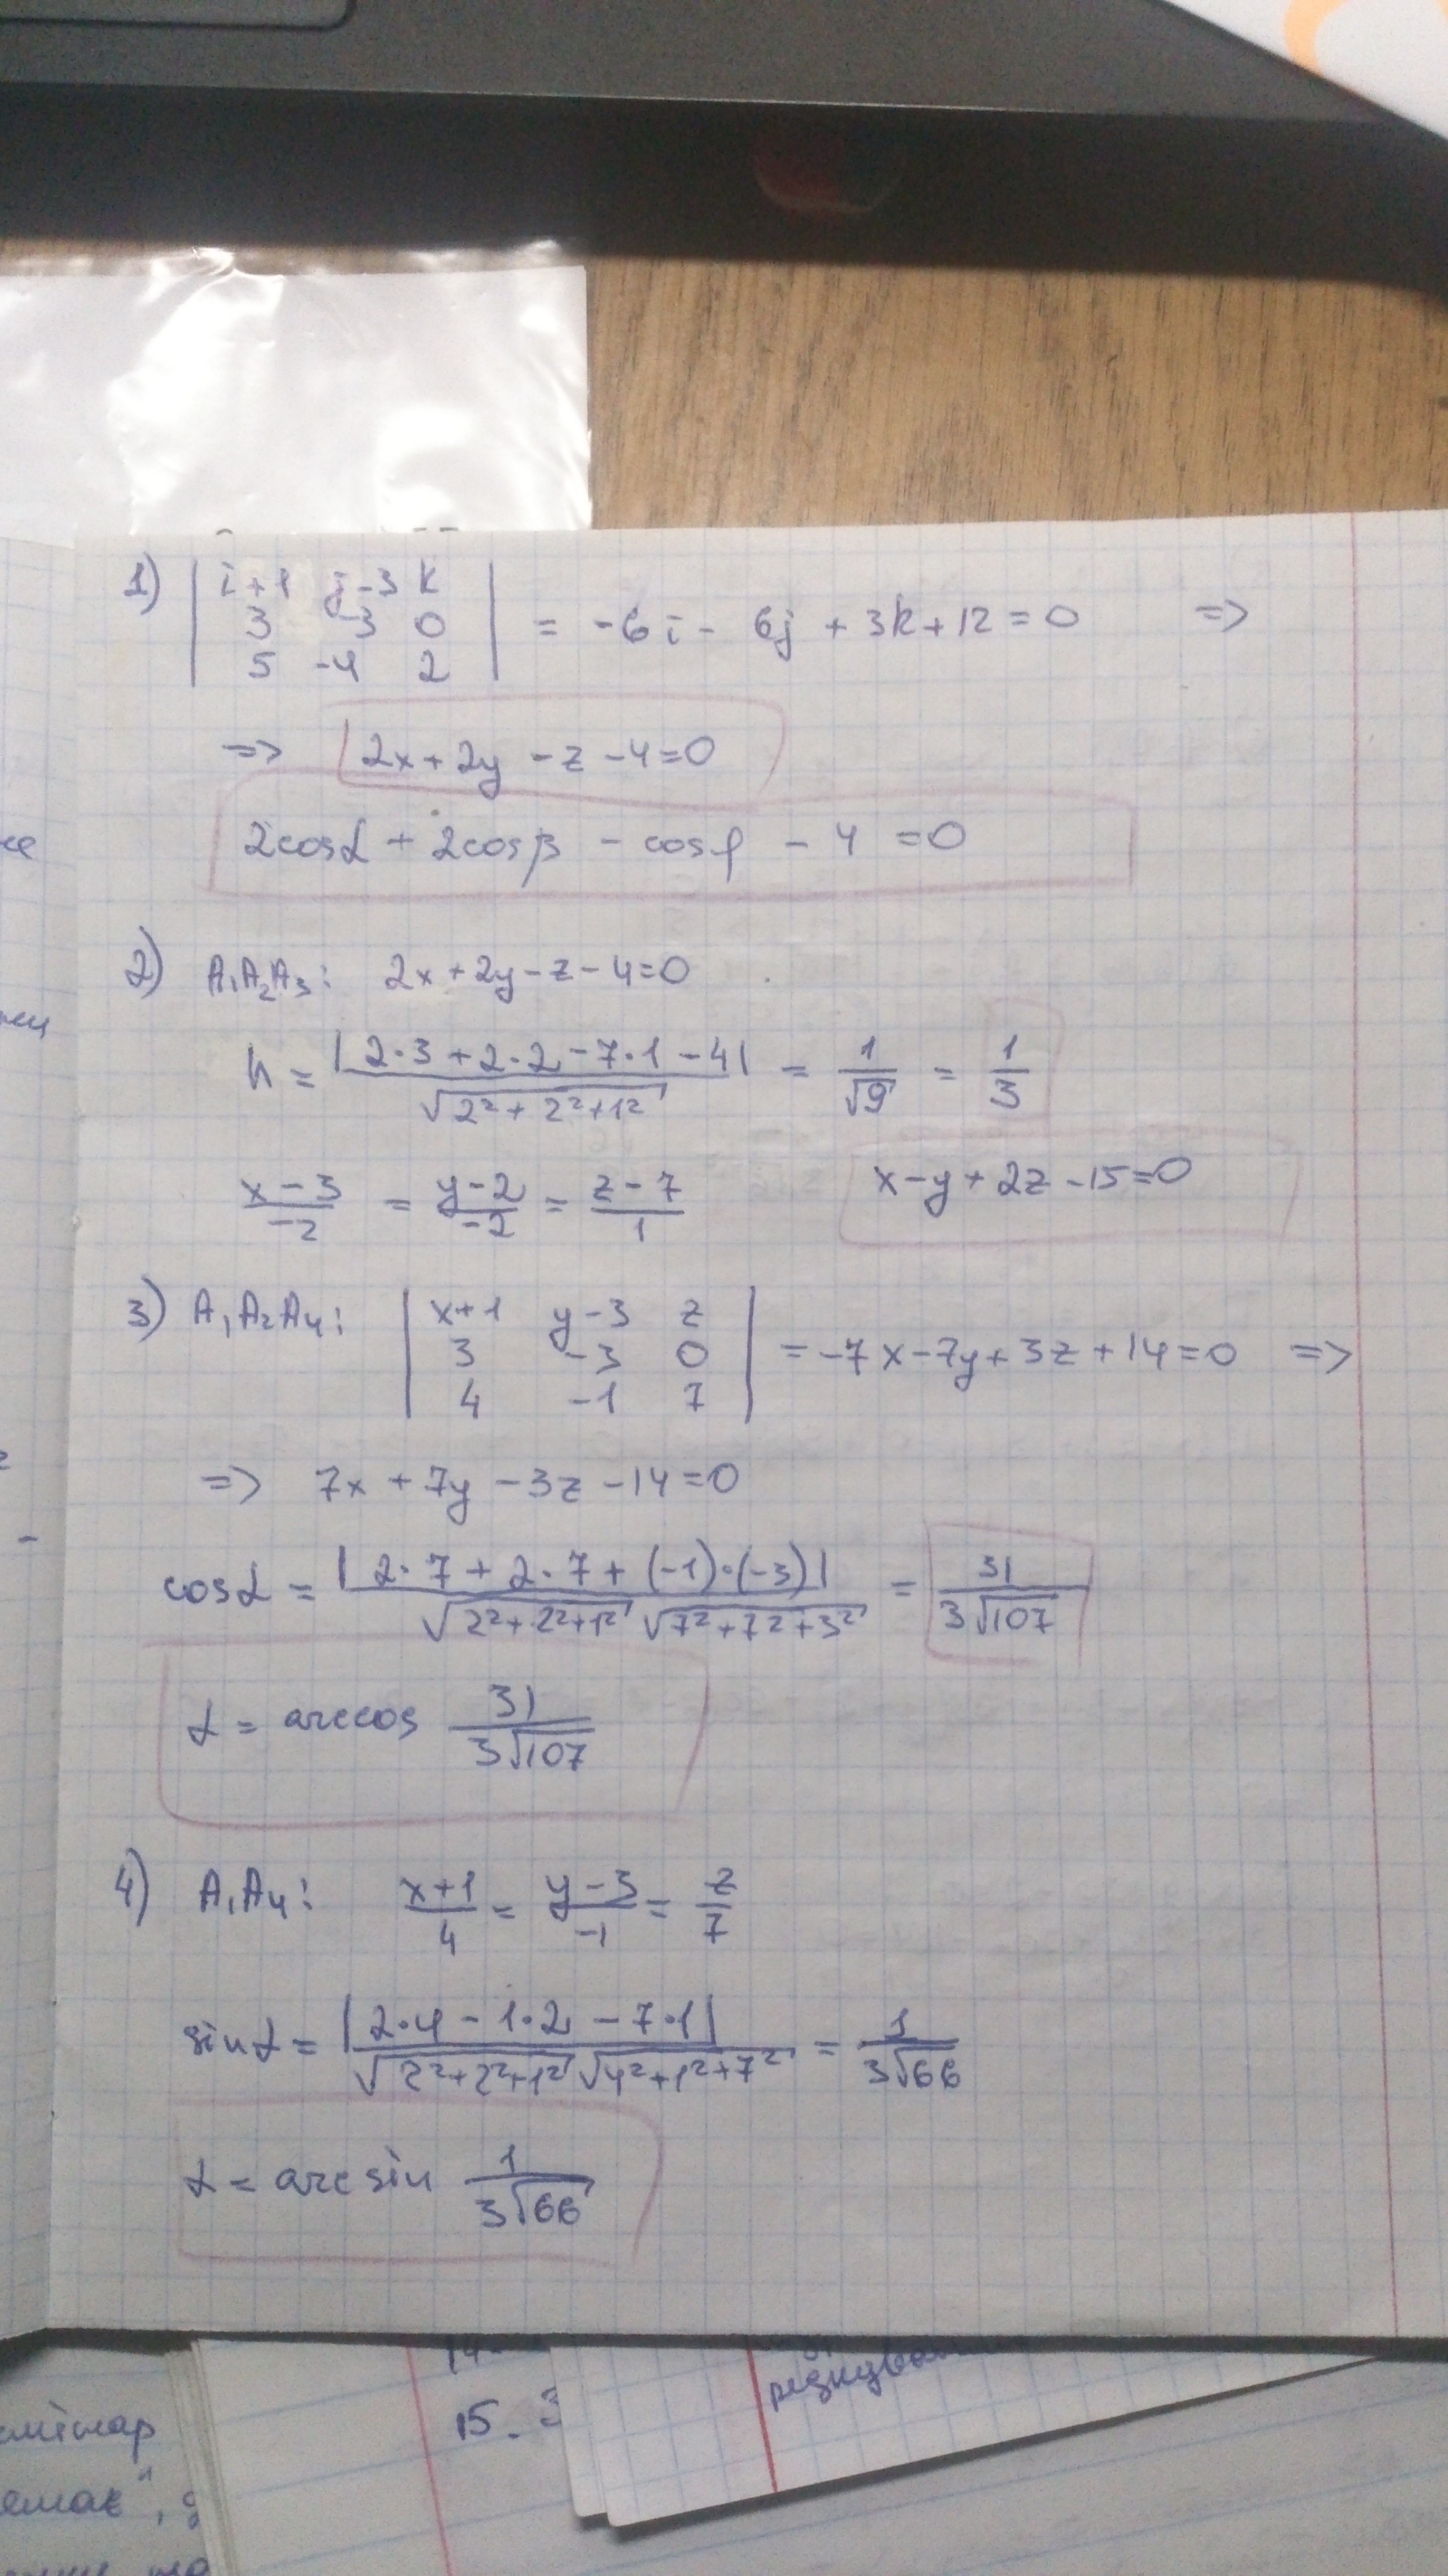 1) | i+1 j-3 k |
| 3 -3 0 | = -6i - 6j + 3k + 12 = 0 =>
| 5 -4 2 |
=> 2x + 2y - z - 4 = 0
2cosα + 2cosβ - cosγ - 4 = 0
2) A₁A₂A₃: 2x + 2y - z - 4 = 0
h = |2·3 + 2·2 - 7·1 - 4| / √(2² + 2² + 1²) = 1/√9 = 1/3
(x-3)/-2 = (y-2)/-2 = (z-7)/1 x - y + 2z - 15 = 0
3) A₁A₂A₄: | x+1 y-3 z |
| 3 -3 0 | = -7x - 7y + 3z + 14 = 0 =>
| 4 -1 7 |
=> 7x + 7y - 3z - 14 = 0
cosα = |2·7 + 2·7 + (-1)·(-3)| / √(2²+2²+1²) √(7²+7²+3²) = 31/(3√107)
α = arccos 31/(3√107)
4) A₁A₄: (x+1)/4 = (y-3)/-1 = z/7
sinα = |2·4 - 1·2 - 7·1| / √(2²+2²+1²) √(4²+1²+7²) = 1/(3√66)
α = arcsin 1/(3√66)
15. 3